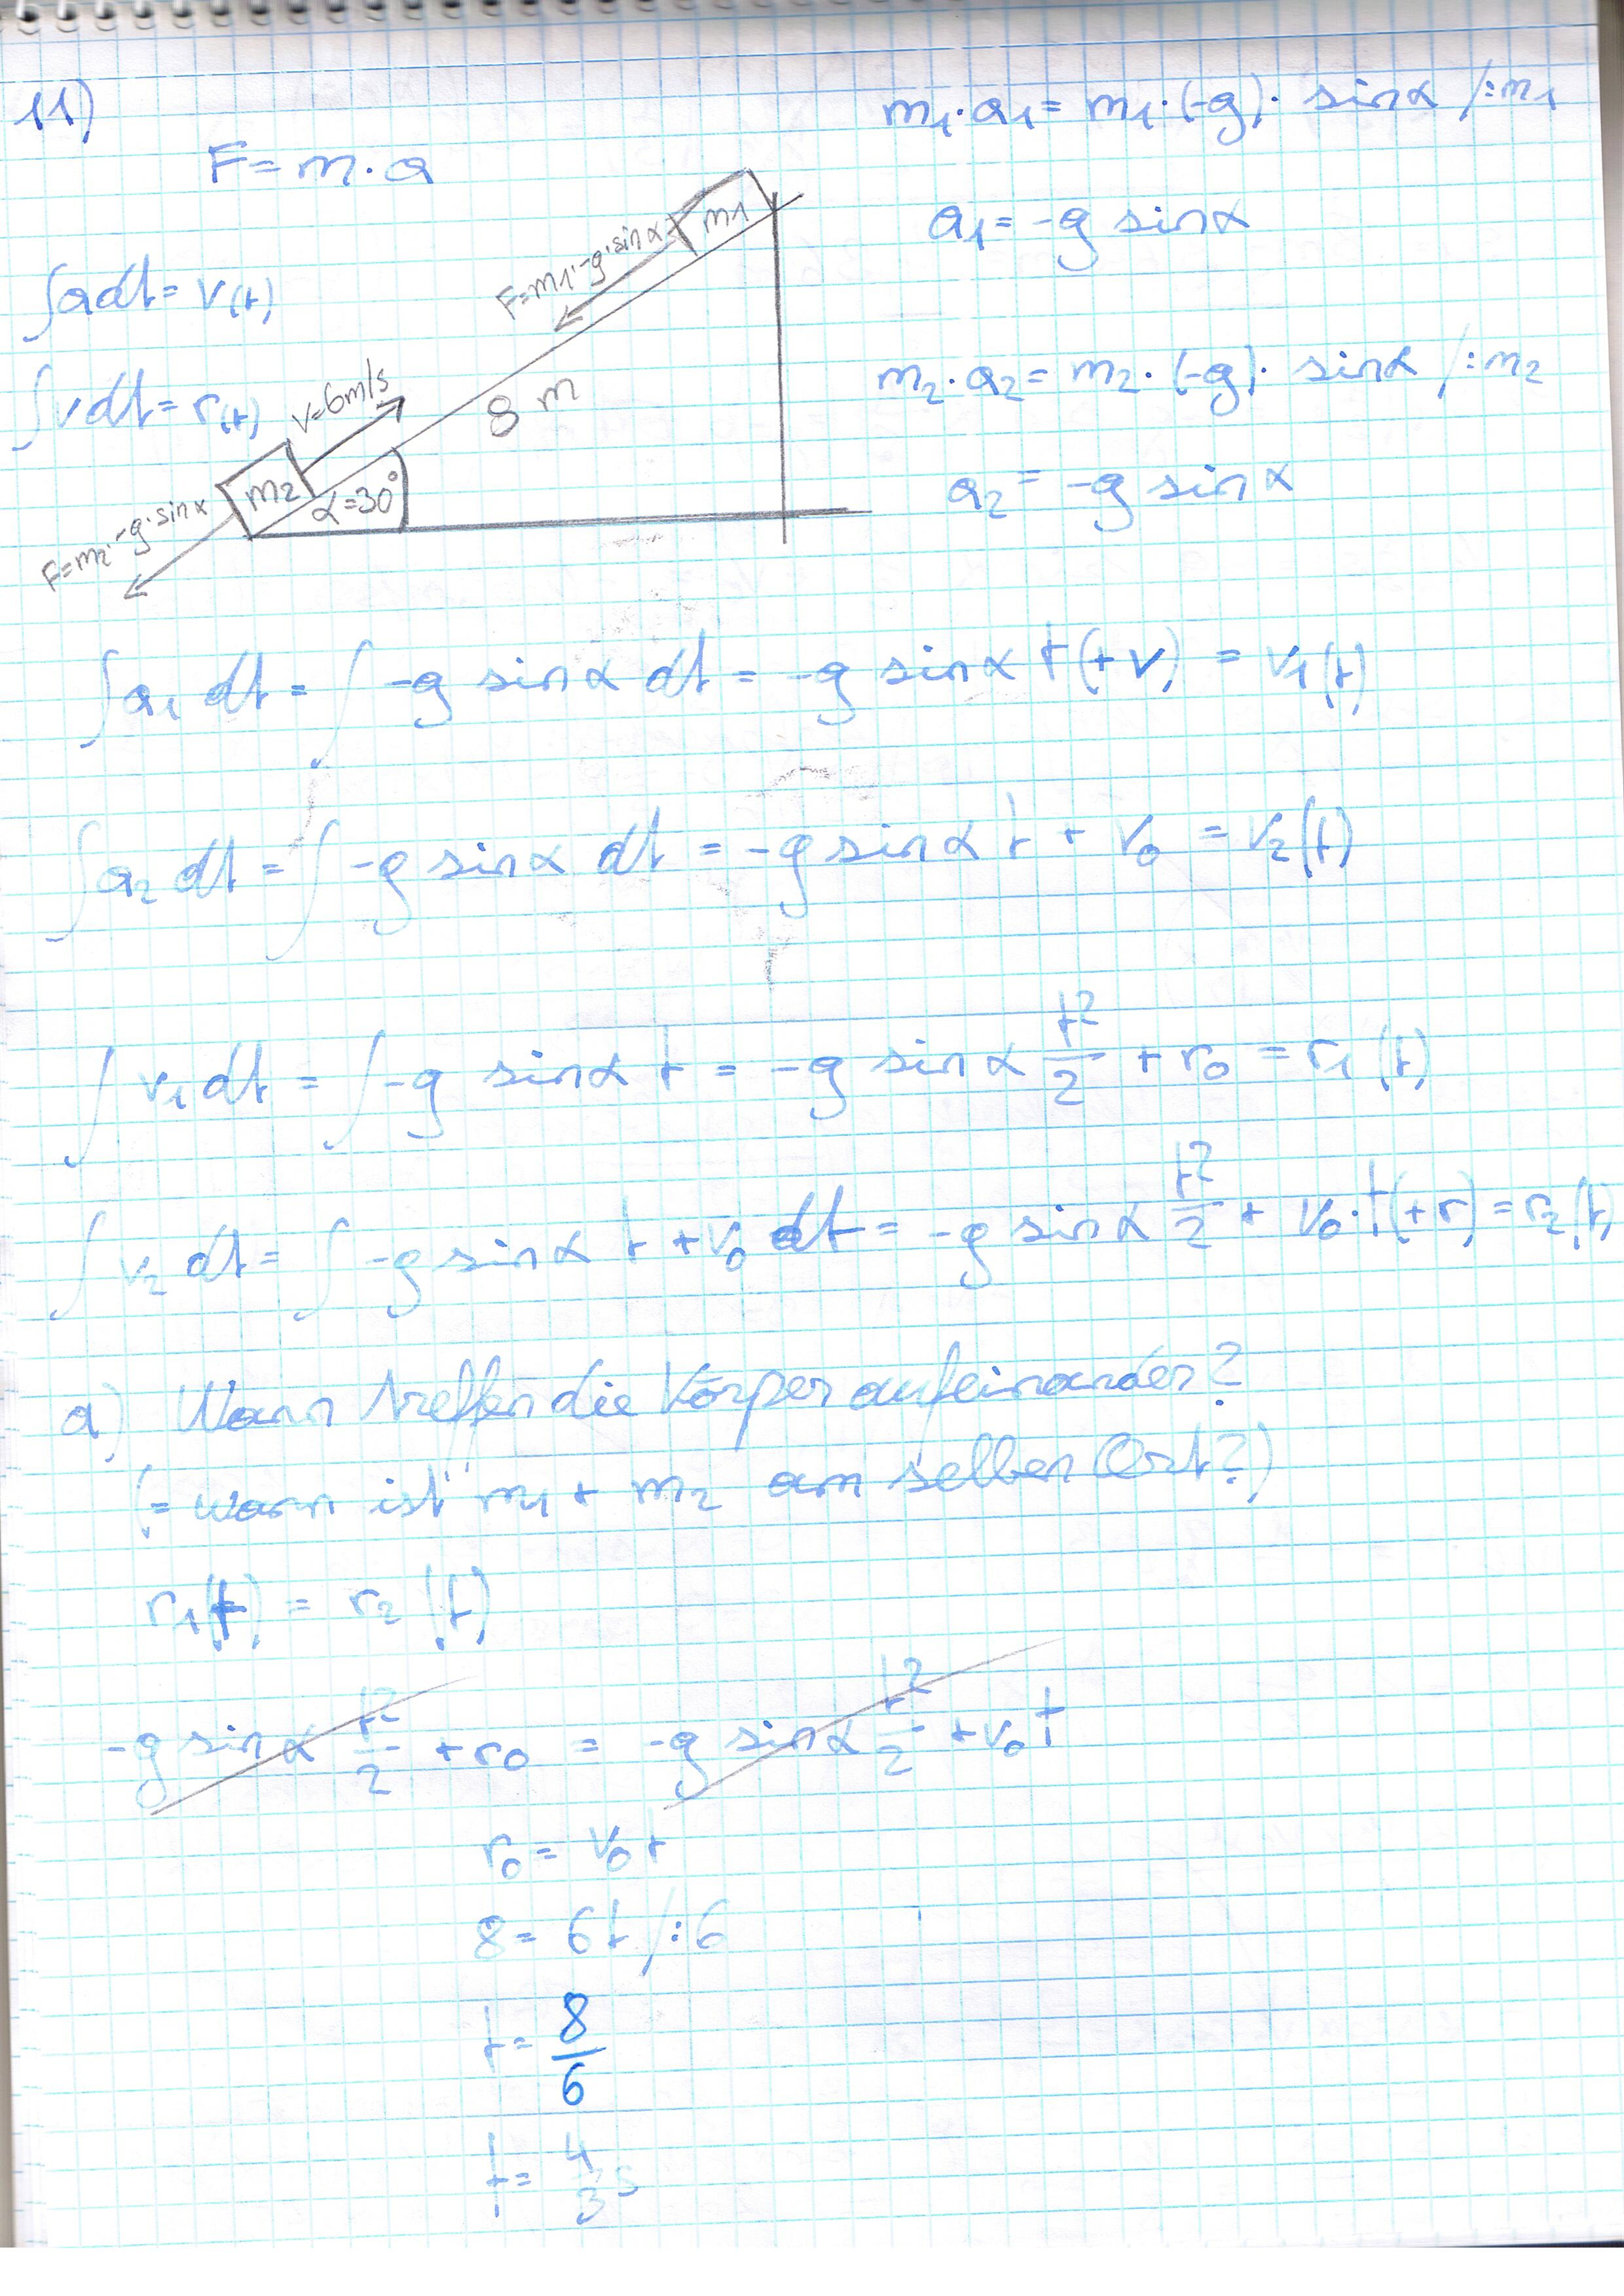 11)
F = m · a
m₁ · a₁ = m₁ · (-g) · sin α /:m₁
a₁ = -g sin α
∫a dt = v(t)
∫v dt = r(t)
F=m₁·-g·sin α
m1
8 m
v=6m/s
m2
α=30°
F=m₂·-g·sin α
m₂ · a₂ = m₂ · (-g) · sin α /:m₂
a₂ = -g sin α
∫ a₁ dt = ∫ -g sin α dt = -g sin α t (+v) = v₁(t)
∫ a₂ dt = ∫ -g sin α dt = -g sin α t + v₀ = v₂(t)
∫ v₁ dt = ∫ -g sin α t = -g sin α t²/2 + r₀ = r₁(t)
∫ v₂ dt = ∫ -g sin α t + v₀ dt = -g sin α t²/2 + v₀·t(+r) = r₂(t)
a) Wann treffen die Körper aufeinander?
(= wann ist m₁ + m₂ am selben Ort?)
r₁(t) = r₂(t)
-g sin α t²/2 + r₀ = -g sin α t²/2 + v₀ t
r₀ = v₀ t
8 = 6t /:6
t = 8/6
t = 4/3 s